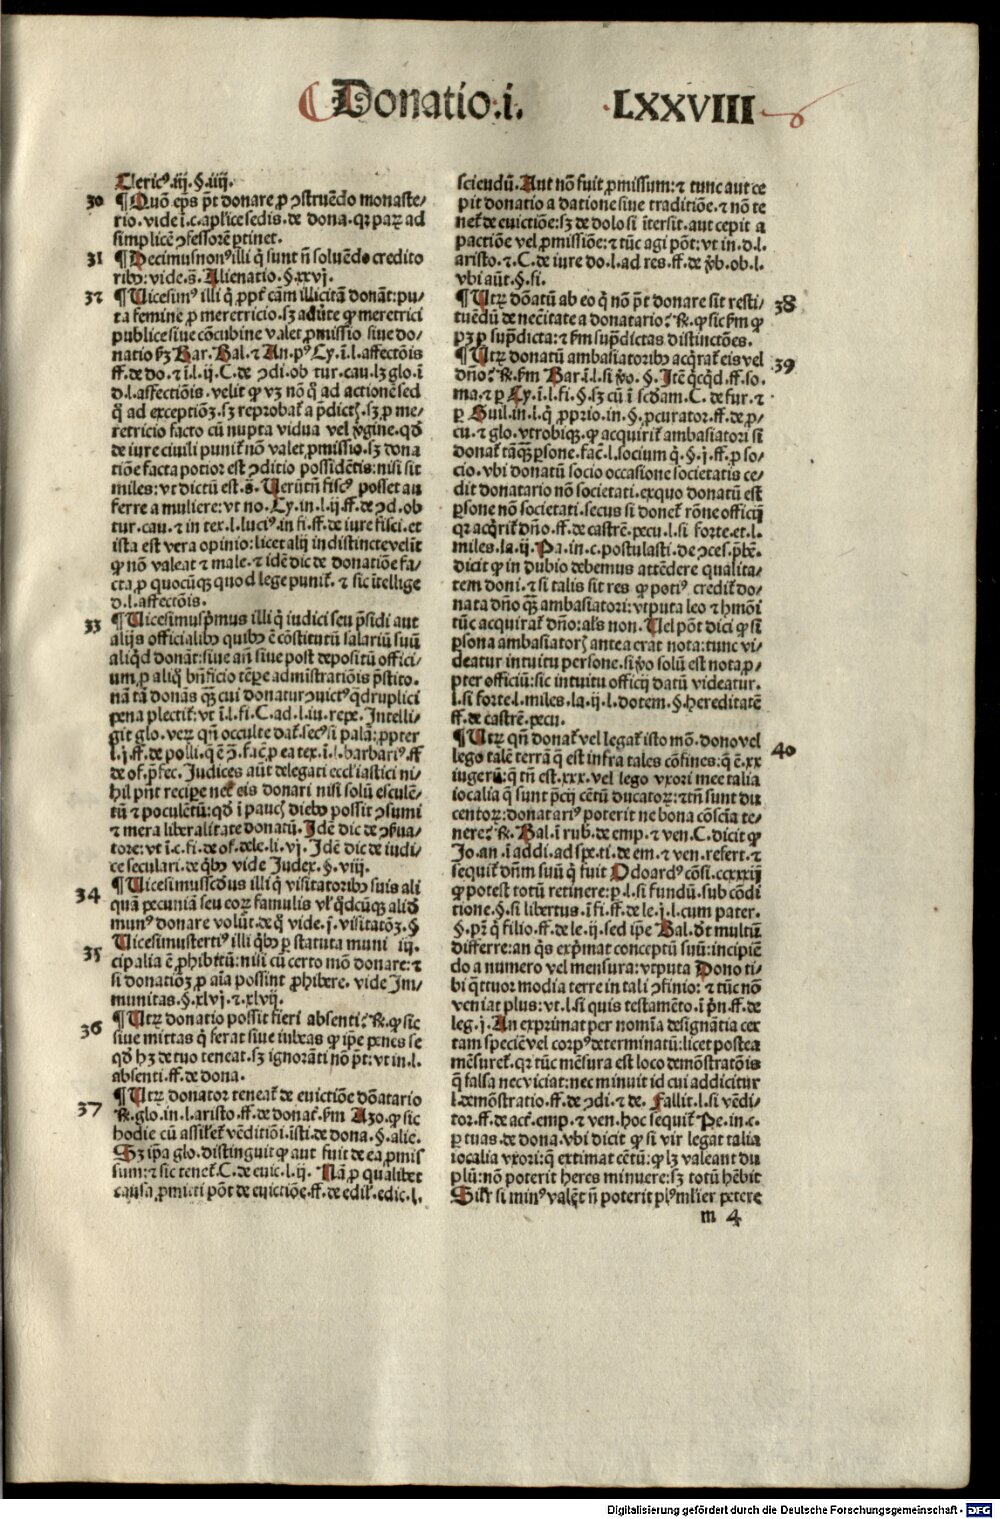 Donatio.i. .LXXVIII
Clericꝰ.iij.§.iiij.
30 ¶ Quō ep̄s pt̄ donare ꝓ ꝯstruēdo monaste-
rio.vide ī.c.aplice sedis.de dona.qꝛ paꝝ ad
simplicē ꝯfessorē ptinet.
31 ¶ Decimusnonꝰ illi q̄ sunt n̄ soluēdo credito
ribꝫ:vide.s̄.Alienatio.§.xxvj.
32 ¶ Vicesimꝰ illi q̄ ꝓpt̄ cām illicitā donāt:pu-
ta femine ꝓ meretricio.sꝫ aduerte ꝙ meretrici
publice siue cōcubine valet ꝓmissio siue do-
natio ẜm Bar.Bal.⁊ An.pꝰ Cy.ī.l.affectōis
ff.de do.⁊ ī.l.ij.C.de ꝯdi.ob tur.cau.lꝫ glo.ī
d.l.affectiōis.velit ꝙ vꝫ nō q̊ ad actionē sed
q̊ ad exceptiōꝫ.sꝫ reprobat̄ a p̄dictꝭ.sꝫ ꝓ me-
retricio facto cū nupta vidua vel v̓gine.qd̄
de iure ciuili punit̄ nō valet ꝓmissio.sꝫ dona
tiōe facta potior est ꝯditio possidētis:nisi sit
miles:vt dictū est.s̄.Uerūtn̄ fiscꝰ posset au
ferre a muliere:vt no.Cy.in.l.ij.ff.de ꝯd.ob
tur.cau.⁊ in tex.l.luciꝰ.in fi.ff.de iure fisci.et
ista est vera opinio:licet alij indistincte velīt
ꝙ nō valeat ⁊ male.⁊ idē dic de donatiōe fa-
cta ꝓ quocūqꝫ quod lege punit̄.⁊ sic ītellige
d.l.affectōis.
33 ¶ Vicesimusp̄mus illi q̄ iudici seu p̄sidi aut
alijs officialibꝫ quibꝫ ē cōstitutū salariū suū
aliq̄d donāt:siue an̄ siue post depositū offici-
um.ꝓ aliq̊ bn̄ficio tēpꝛe admistratiōis p̄stito.
nā tā donās qꝫ cui donatur ꝯuictꝰ q̄druplici
pena plectit̄:vt ī.l.fi.C.ad.l.iu.repe.Intelli-
git glo.veꝝ qn̄ occulte dat̄.secꝰ si palā:ꝓpter
l.j.ff.de polli.q̄ ē ꝯ̄.fac̄ ꝓ ea tex.ī.l.barbariꝰ.ff
de of.p̄fec.Judices aūt delegati eccl̓iastici ni-
hil pn̄t recipe nec̄ eis donari nisi solū esculē-
tū ⁊ poculētū:qd̄ ī paucꝭ diebꝫ possit ꝯsumi
⁊ mera liberalitate donatū.Idē dic de ꝯẜua-
tore:vt ī.c.fi.de of.dele.li.vj.Idē dic de iudi-
ce seculari.de q̊bꝫ vide Judex.§.viij.
34 ¶ Vicesimusscd̓us illi q̄ visitatoribꝫ suis ali
quā pecuniā seu eoꝝ famulis vl̓ q̄dcūqꝫ aliḋ
munꝰ donare volūt.de q̊ vide.j.visitatōꝫ.§
35 Vicesimustertiꝰ illi q̊bꝫ ꝑ statuta muni iij.
cipalia ē ꝓhibitū:nisi cū certo mō donare:⁊
si donatiōꝫ ꝓ aīa possint ꝓhibere.vide Im-
munitas.§.xlvj.⁊.xlvij.
36 ¶ Utꝝ donatio possit fieri absenti:℞.ꝙ sic
siue mittas q̄ ferat siue iubeas ꝙ ip̄e penes se
qd̄ hꝫ de tuo teneat.sꝫ ignorāti nō pt̄:vt in.l.
absenti.ff.de dona.
37 ¶ Utꝝ donator teneat̄ de euictiōe dōatario
℞.glo.in.l.aristo.ff.de donat̄.ẜm Azo.ꝙ sic
hodie cū assilet̄ vēditiōi.īsti.de dona.§.alie.
Sꝫ ip̄a glo.distinguit ꝙ aut fuit de ea ꝓmis
sum:⁊ sic tenet̄.C.de euic.l.ij. Nā ꝓ qualibet
causa ꝓmitti pōt de euictiōe.ff.de edil̓.edic.l.
sciendū.Aut nō fuit ꝓmissum:⁊ tunc aut ce
pit donatio a datione siue traditiōe.⁊ nō te
net̄ de euictiōe:sꝫ de dolo si īterſit.aut cepit a
pactiōe vel ꝓmissiōe:⁊ tūc agi pōt:vt in.d.l.
aristo.⁊.C.de iure do.l.ad res.ff.de v̓b.ob.l.
vbi aūt.§.fi.
38 ¶ Utꝝ dōatū ab eo q̄ nō pt̄ donare sit resti-
tuēdū de necc̄itate a donatario:℞.ꝙ sic ẜm ꝙ
pꝫ ꝑ sup̄dicta:⁊ ẜm sup̄dictas distinctōes.
39 ¶ Utꝝ donatū ambasiatoribꝫ acq̄rat̄ eis vel
dn̄o:℞.ẜm Bar.ī.l.si v̓o.§.Itē q̄cq̄d.ff.so.
ma.⁊ ꝑ Cy.ī.l.fi.§.sꝫ cū ī scd̄am.C.de fur.⁊
ꝑ Guil.in.l.q̄ ꝓprio.in.§.ꝓcurator.ff.de ꝓ-
cu.⁊ glo.vtrobiqꝫ.ꝙ acquirit̄ ambasiatori si
donat̄ tāqꝫ ꝑsone.fac̄.l.socium q̄.§.j.ff.ꝓ so-
cio.vbi donatū socio occasione societatis ce-
dit donatario nō societati.exquo donatū est
ꝑsone nō societati.secus si donet̄ rōne officij
qꝛ acq̄rit̄ dn̄o.ff.de castrē.pecu.l.si forte.et.l.
miles.la.ij.Pa.in.c.postulasti.de ꝯces.p̄bē.
dicit ꝙ in dubio debemus attēdere qualita-
tem doni.⁊ si talis sit res ꝙ potiꝰ credit̄ do-
nata dn̄o qꝫ ambasiatori:vtputa leo ⁊ hmōi
tūc acquirat̄ dn̄o:al̓s non.Vel pōt dici ꝙ si
ꝑsona ambasiatorꝭ antea erat nota:tunc vi-
deatur intuitu persone.si v̓o solū est nota ꝓ-
pter officiū:sic intuitu officij datū videatur.
l.si forte.l.miles.la.ij.l.dotem.§.hereditatē
ff.de castrē.pecu.
40 ¶ Utꝝ qn̄ donat̄ vel legat̄ isto mō.dono vel
lego talē terrā q̄ est infra tales cōfines:q̄ ē.xx
iugerū:q̄ tn̄ est.xxx.vel lego vxori mee talia
iocalia q̄ sunt p̄cij cētū ducatoꝝ:⁊ tn̄ sunt du
centoꝝ:donatariꝰ poterit ne bona cōscīa te-
nere:℞.Bal.ī rub.de emp.⁊ ven.C.dicit ꝙ
Jo.an.ī addi.ad spe.ti.de em.⁊ ven.refert.⁊
sequit̄ dn̄m suū q̄ fuit Odoardꝰ cōsi.ccxxxij
ꝙ potest totū retinere:ꝑ.l.si fundū.sub cōdi
tione.§.si libertus.ī fi.ff.de le.j.l.cum pater.
§.pꝛ̄ q̄ filio.ff.de le.ij.sed ip̄e Bal.dt̄ multū
differre:an q̄s exp̄mat conceptū suū:incipiē
do a numero vel mensura:vtputa Dono ti-
bi q̄ttuor modia terre in tali ꝯfinio:⁊ tūc nō
veniat plus:vt.l.si quis testamēto.ī p̄n.ff.de
leg.j.An exprimat per nomīa designātia cer
tam speciē vel corpꝰ determinatū:licet postea
mēsuret̄.qꝛ tūc mēsura est loco demōstratōis
q̄ falsa nec viciat:nec minuit id cui addicitur
l.demōstratio.ff.de ꝯdi.⁊ de.Fallit.l.si vēdi-
tor.ff.de act̄.emp.⁊ ven.hoc sequit̄ Pe.in.c.
ꝑ tuas.de dona.vbi dicit ꝙ si vir legat talia
iocalia vxori:q̄ extimat cētū:ꝙ lꝫ valeant du
plū:nō poterit heres minuere:sꝫ totū hēbit
Sil̓r si minꝰ valēt n̄ poterit plꝰ ml̓ier petere
m 4
Digitalisierung gefördert durch die Deutsche Forschungsgemeinschaft - DFG